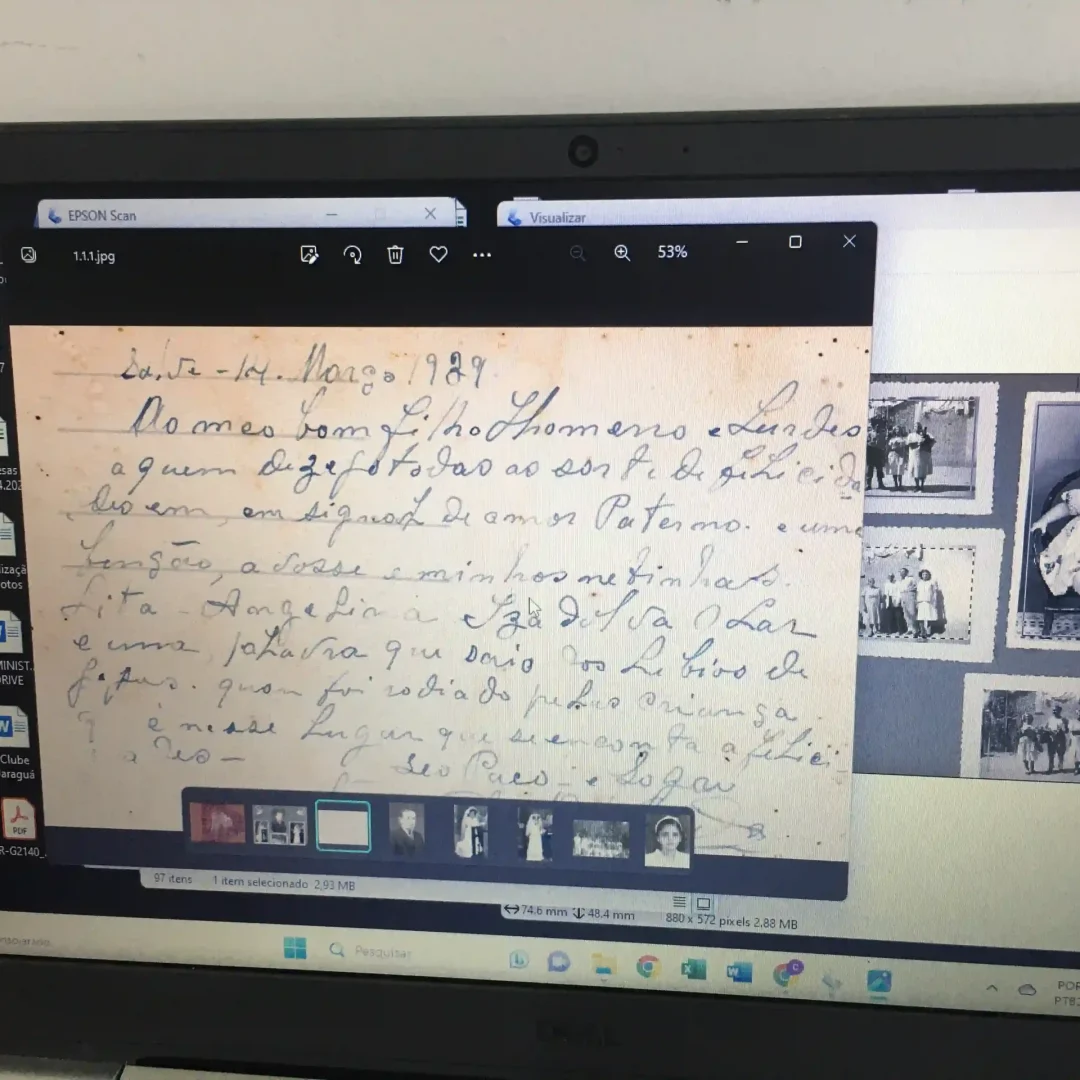 EPSON Scan
Visualizar
1.1.1.jpg
53%
Salve - 14. Março 1939
Ao meo bom filho Thomeno e Lurdes
a quem dezejo todas as sorte de felicida
des em, em signal de amor Paterno. e uma
benção, a vosse e minhas netinhas.
Lita - Angelina Izadelva
e uma palavra que saio dos Labios de
Jesus. quan foi rodiado pelas criança.
é nesse Lugar que se encontra a felici-
Seo Paeo - e Sogro
97 itens 1 item selecionado 2,93 MB
74.6 mm 48.4 mm 880 x 572 pixels 2.88 MB
MINIST.
DRIVE
Clube
araguá
PDF
R-G2140_
Pesquisar
POR
PTB2
DELL